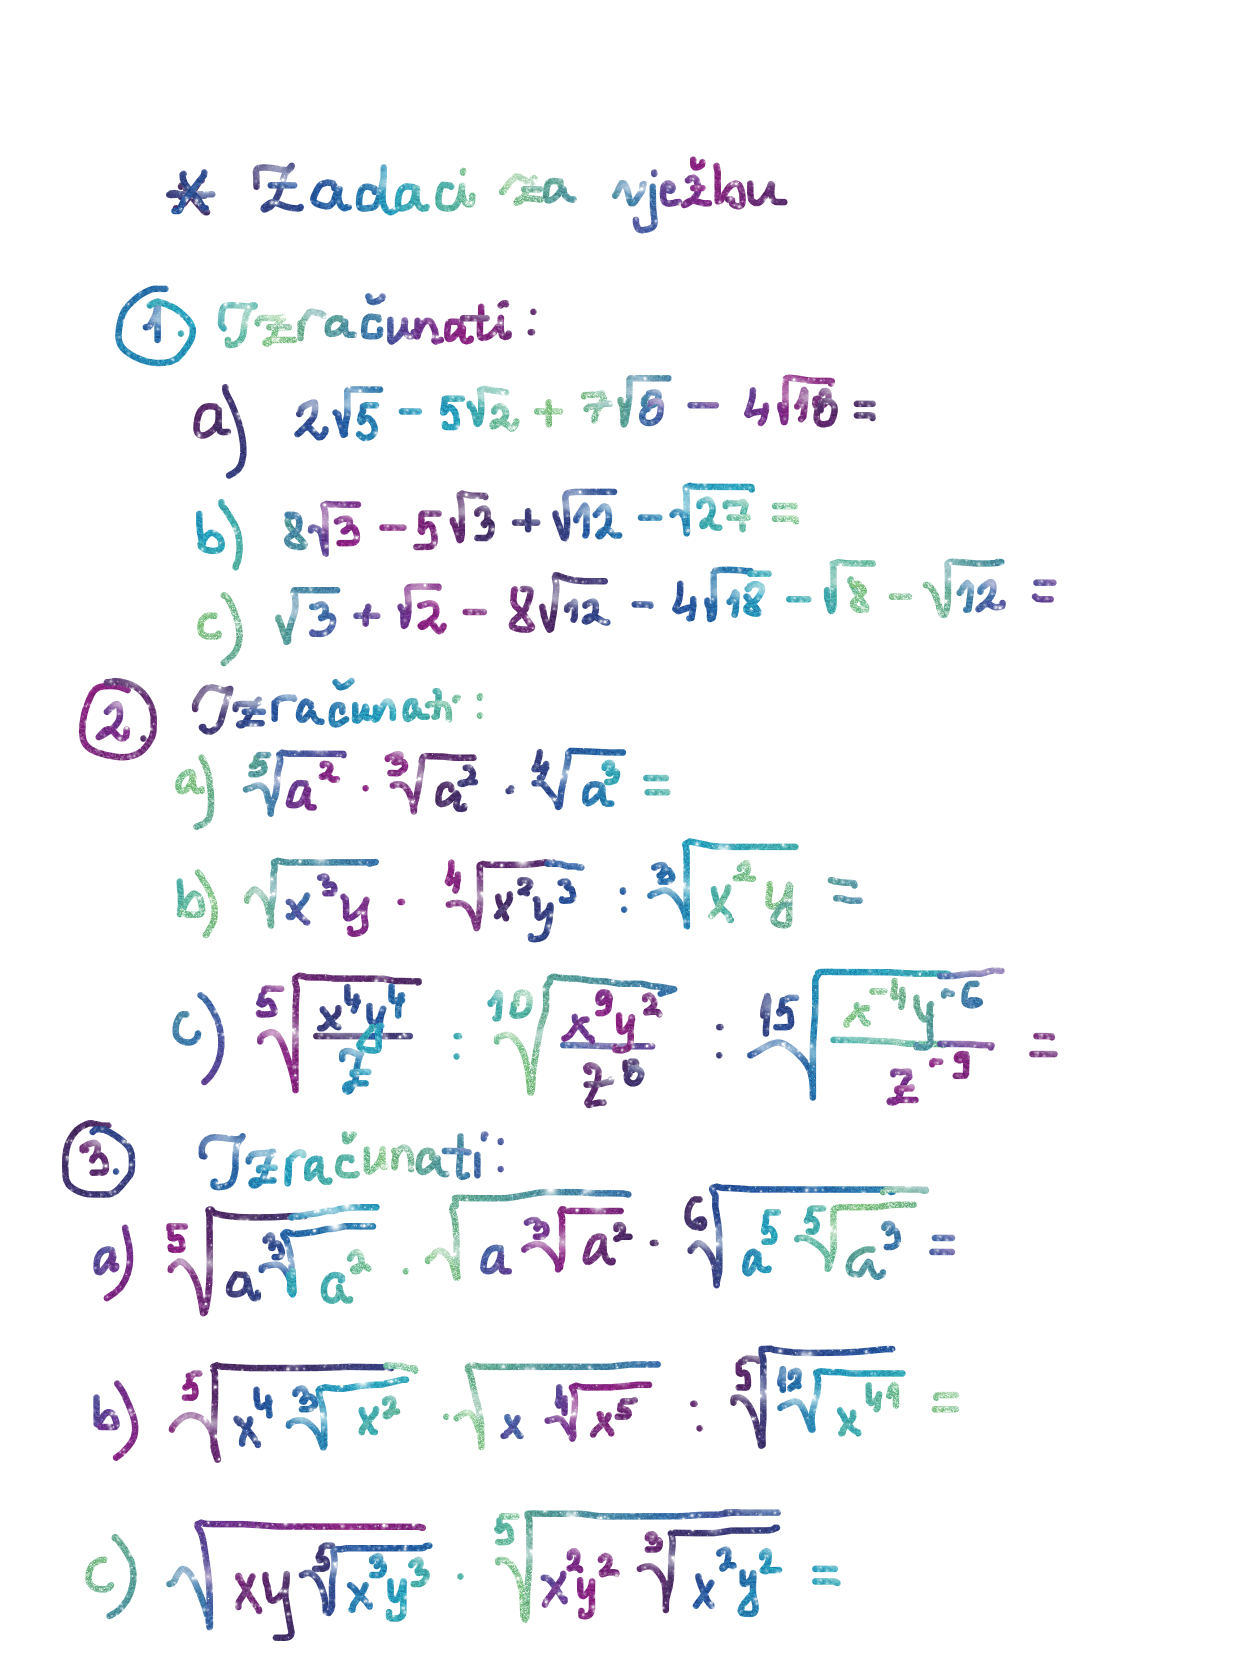 * Zadaci za vježbu
1. Izračunati:
a) 2√5 - 5√2 + 7√8 - 4√18 =
b) 8√3 - 5√3 + √12 - √27 =
c) √3 + √2 - 8√12 - 4√18 - √8 - √12 =
2. Izračunati:
a) ⁵√(a²) · ³√(a²) · ⁴√(a³) =
b) √(x³y) · ⁴√(x²y³) : ³√(x²y) =
c) ⁵√(x⁴y⁴/z) : ¹⁰√(x⁹y²/z⁸) : ¹⁵√(x⁻⁴y⁻⁶/z⁻⁹) =
3. Izračunati:
a) ⁵√(a ³√(a²)) · √(a ³√(a²)) · ⁶√(a⁵ ⁵√(a³)) =
b) ⁵√(x⁴ ³√(x²)) · √(x ⁴√(x⁵)) : ⁵√(¹²√(x⁴⁹)) =
c) √(xy ⁵√(x³y³)) · ⁵√(x²y² ³√(x²y²)) =